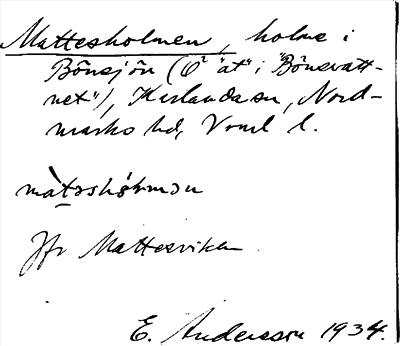 Mattesholmen, holme i
Bönsjön (Ö "åt" i "Bönsvatt-
net"), Karlanda sn, Nord-
marks hd, Vrml l.
Jfr Mattesviken
E. Andersson 1934.